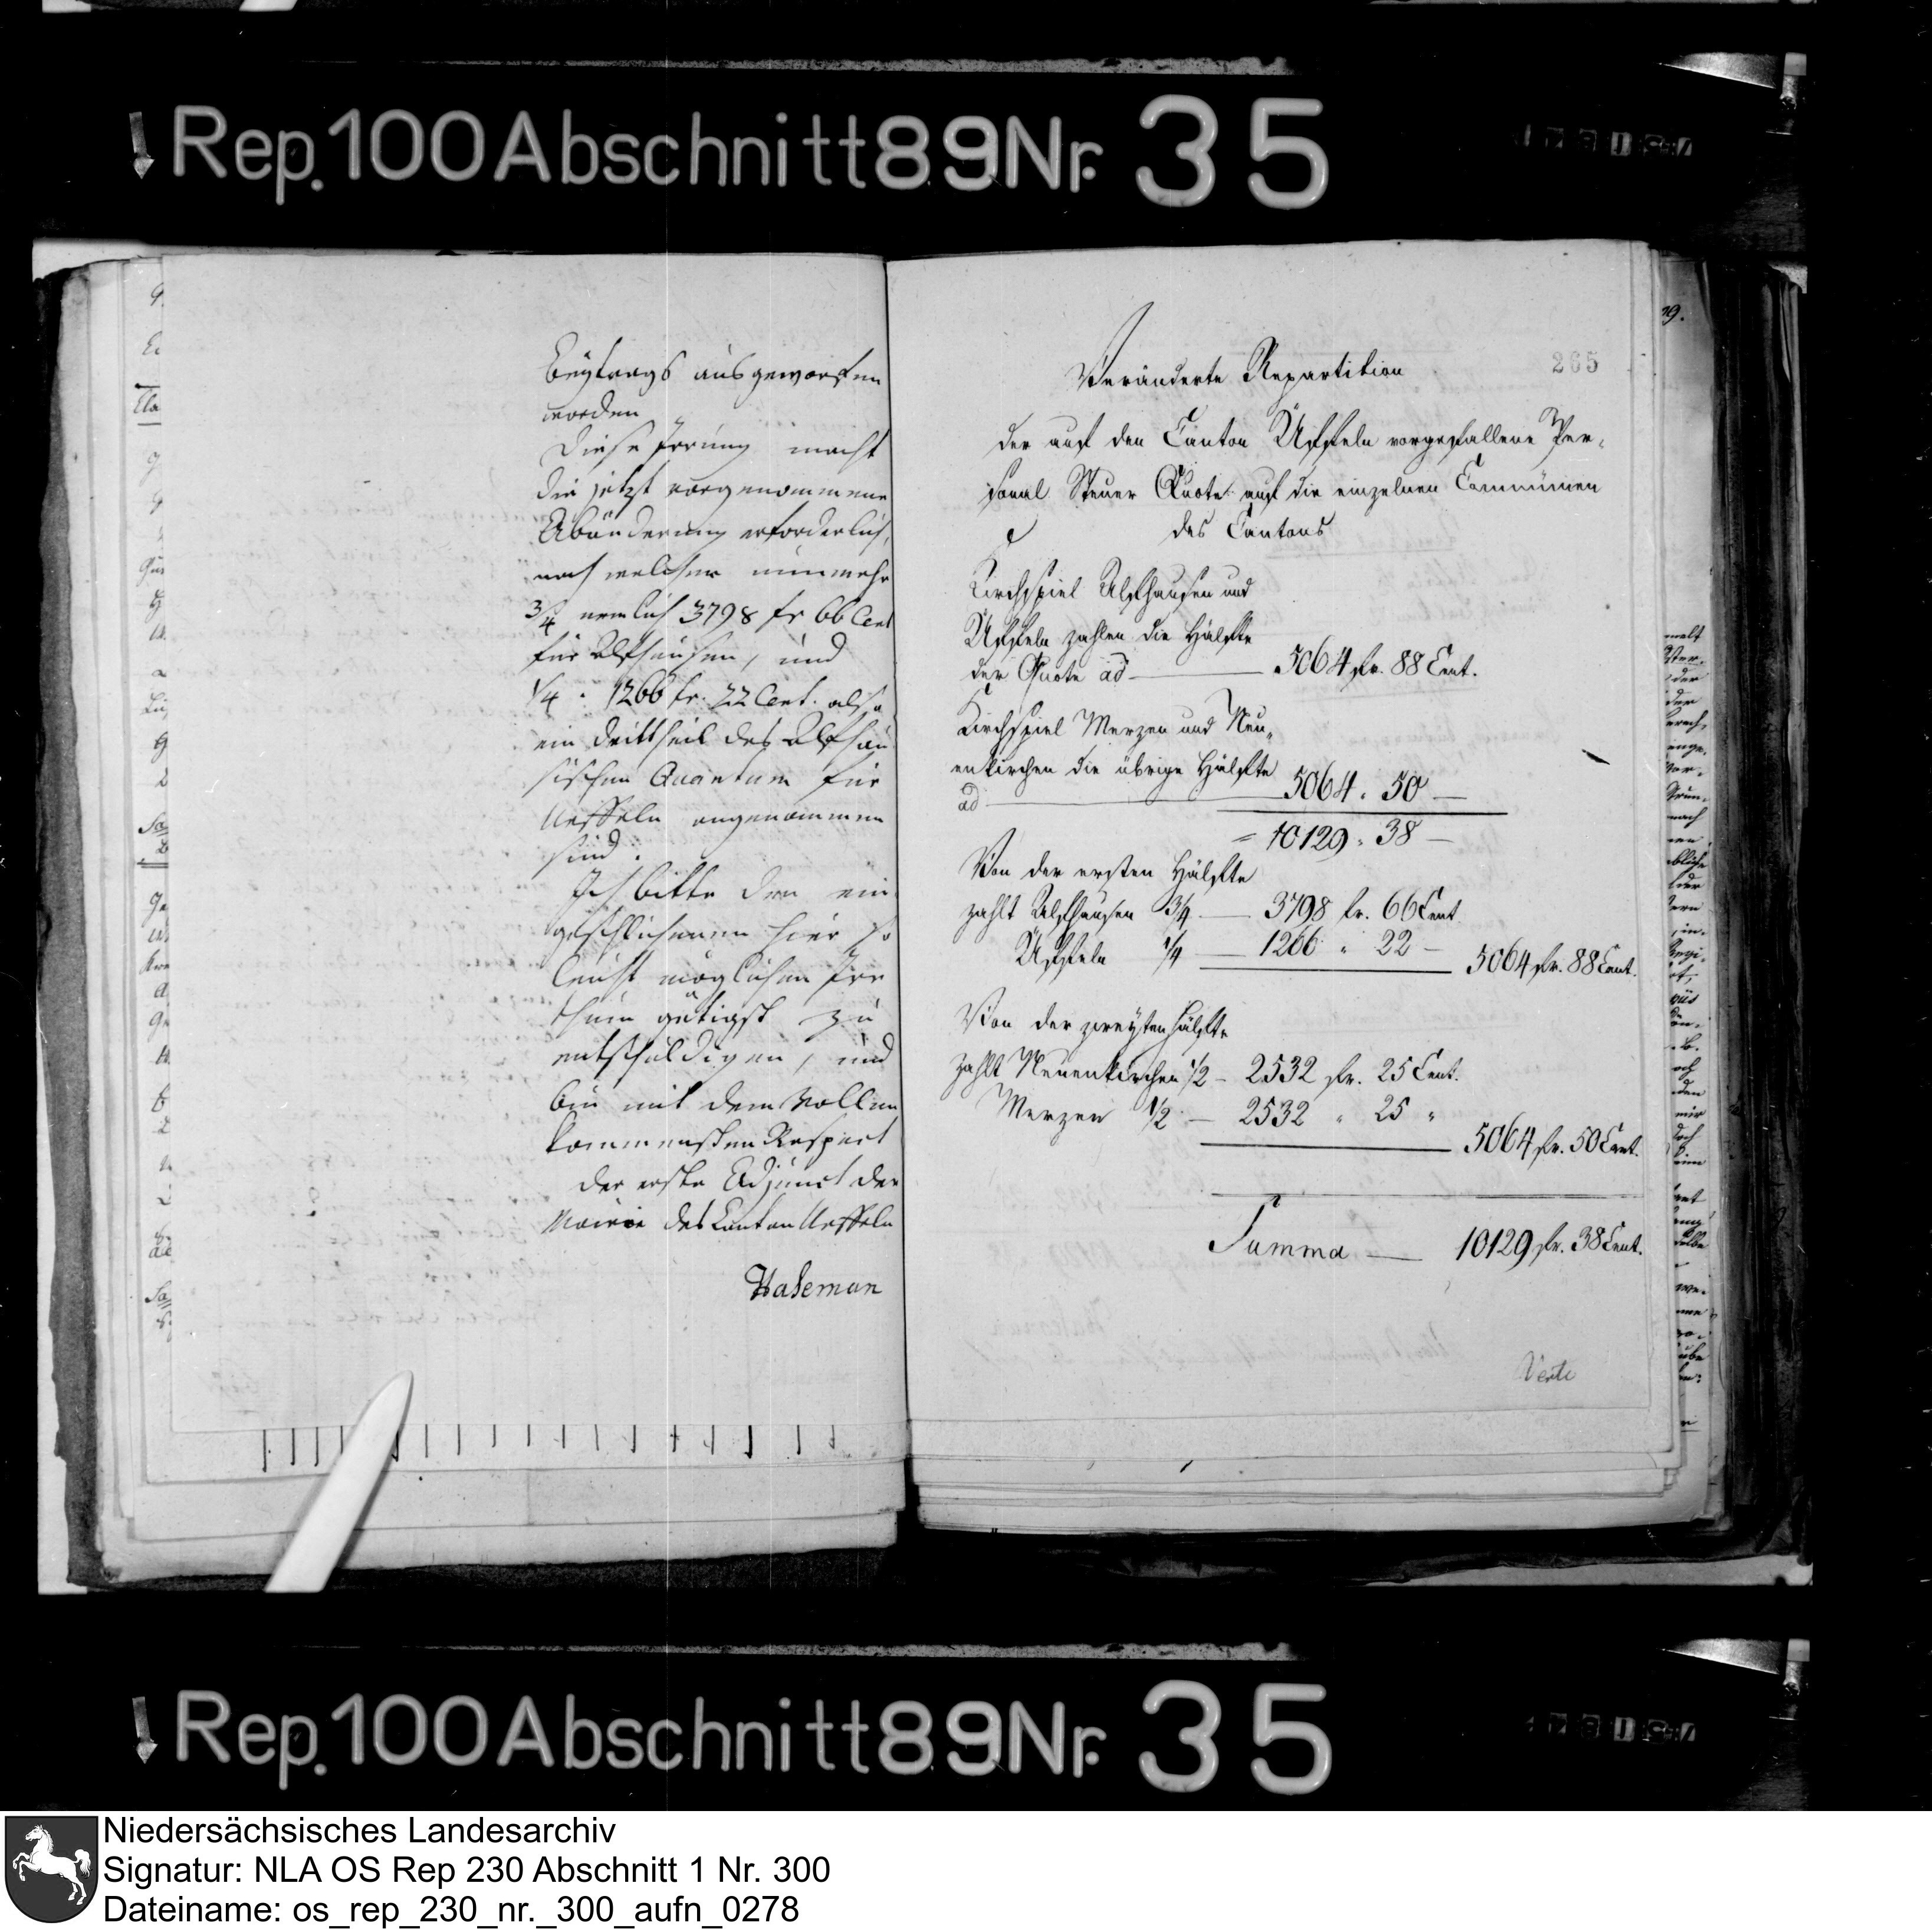 Rep. 100 Abschnitt 89 Nr. 35
Beytrags ausgeworfen
worden
Diese Irrung macht
die jetzt vorgenommene
Abänderung erforderlich,
nach welcher nunmehr
3/4 nemlich 3798 fr 66 Cent
für Alfhausen, und
1/4 : 1266 fr. 22 Cent. also
ein Drittheil des Alfhau
sischen Quantum für
Ueffeln angenommen
sind.
Ich bitte den ein
geschlichenen hier so
leicht möglichen Irr
thum gütigst zu
entschuldigen, und
bin mit dem Vollen
kommensten Respect
der erste Adjunct der
Mairie des Canton Ueffeln
265
Veränderte Repartition
der auf den Canton Üffeln vorgefallene Per-
sonal Steuer Quote auf die einzelnen Communen
des Cantons
Kirchspiel Alfhausen und
Üffeln zahlen die Hälfte
der Quote ad — 5064 fr. 88 Cent.
Kirchspiel Merzen und Neu-
enkirchen die übrige Hälfte
ad — 5064 . 50 —
= 10129 . 38 —
Von der ersten Hälfte
zahlt Alfhausen 3/4 — 3798 fr. 66 Cent.
Üffeln 1/4 — 1266 " 22 — 5064 fr. 88 Cent.
Von der zweyten Hälfte
zahlt Neuenkirchen 1/2 — 2532 fr. 25 Cent.
Merzen 1/2 — 2532 " 25 "
5064 fr. 50 Cent.
Summa — 10129 fr. 38 Cent.
Verte
Rep. 100 Abschnitt 89 Nr. 35
Niedersächsisches Landesarchiv
Signatur: NLA OS Rep 230 Abschnitt 1 Nr. 300
Dateiname: os_rep_230_nr._300_aufn_0278